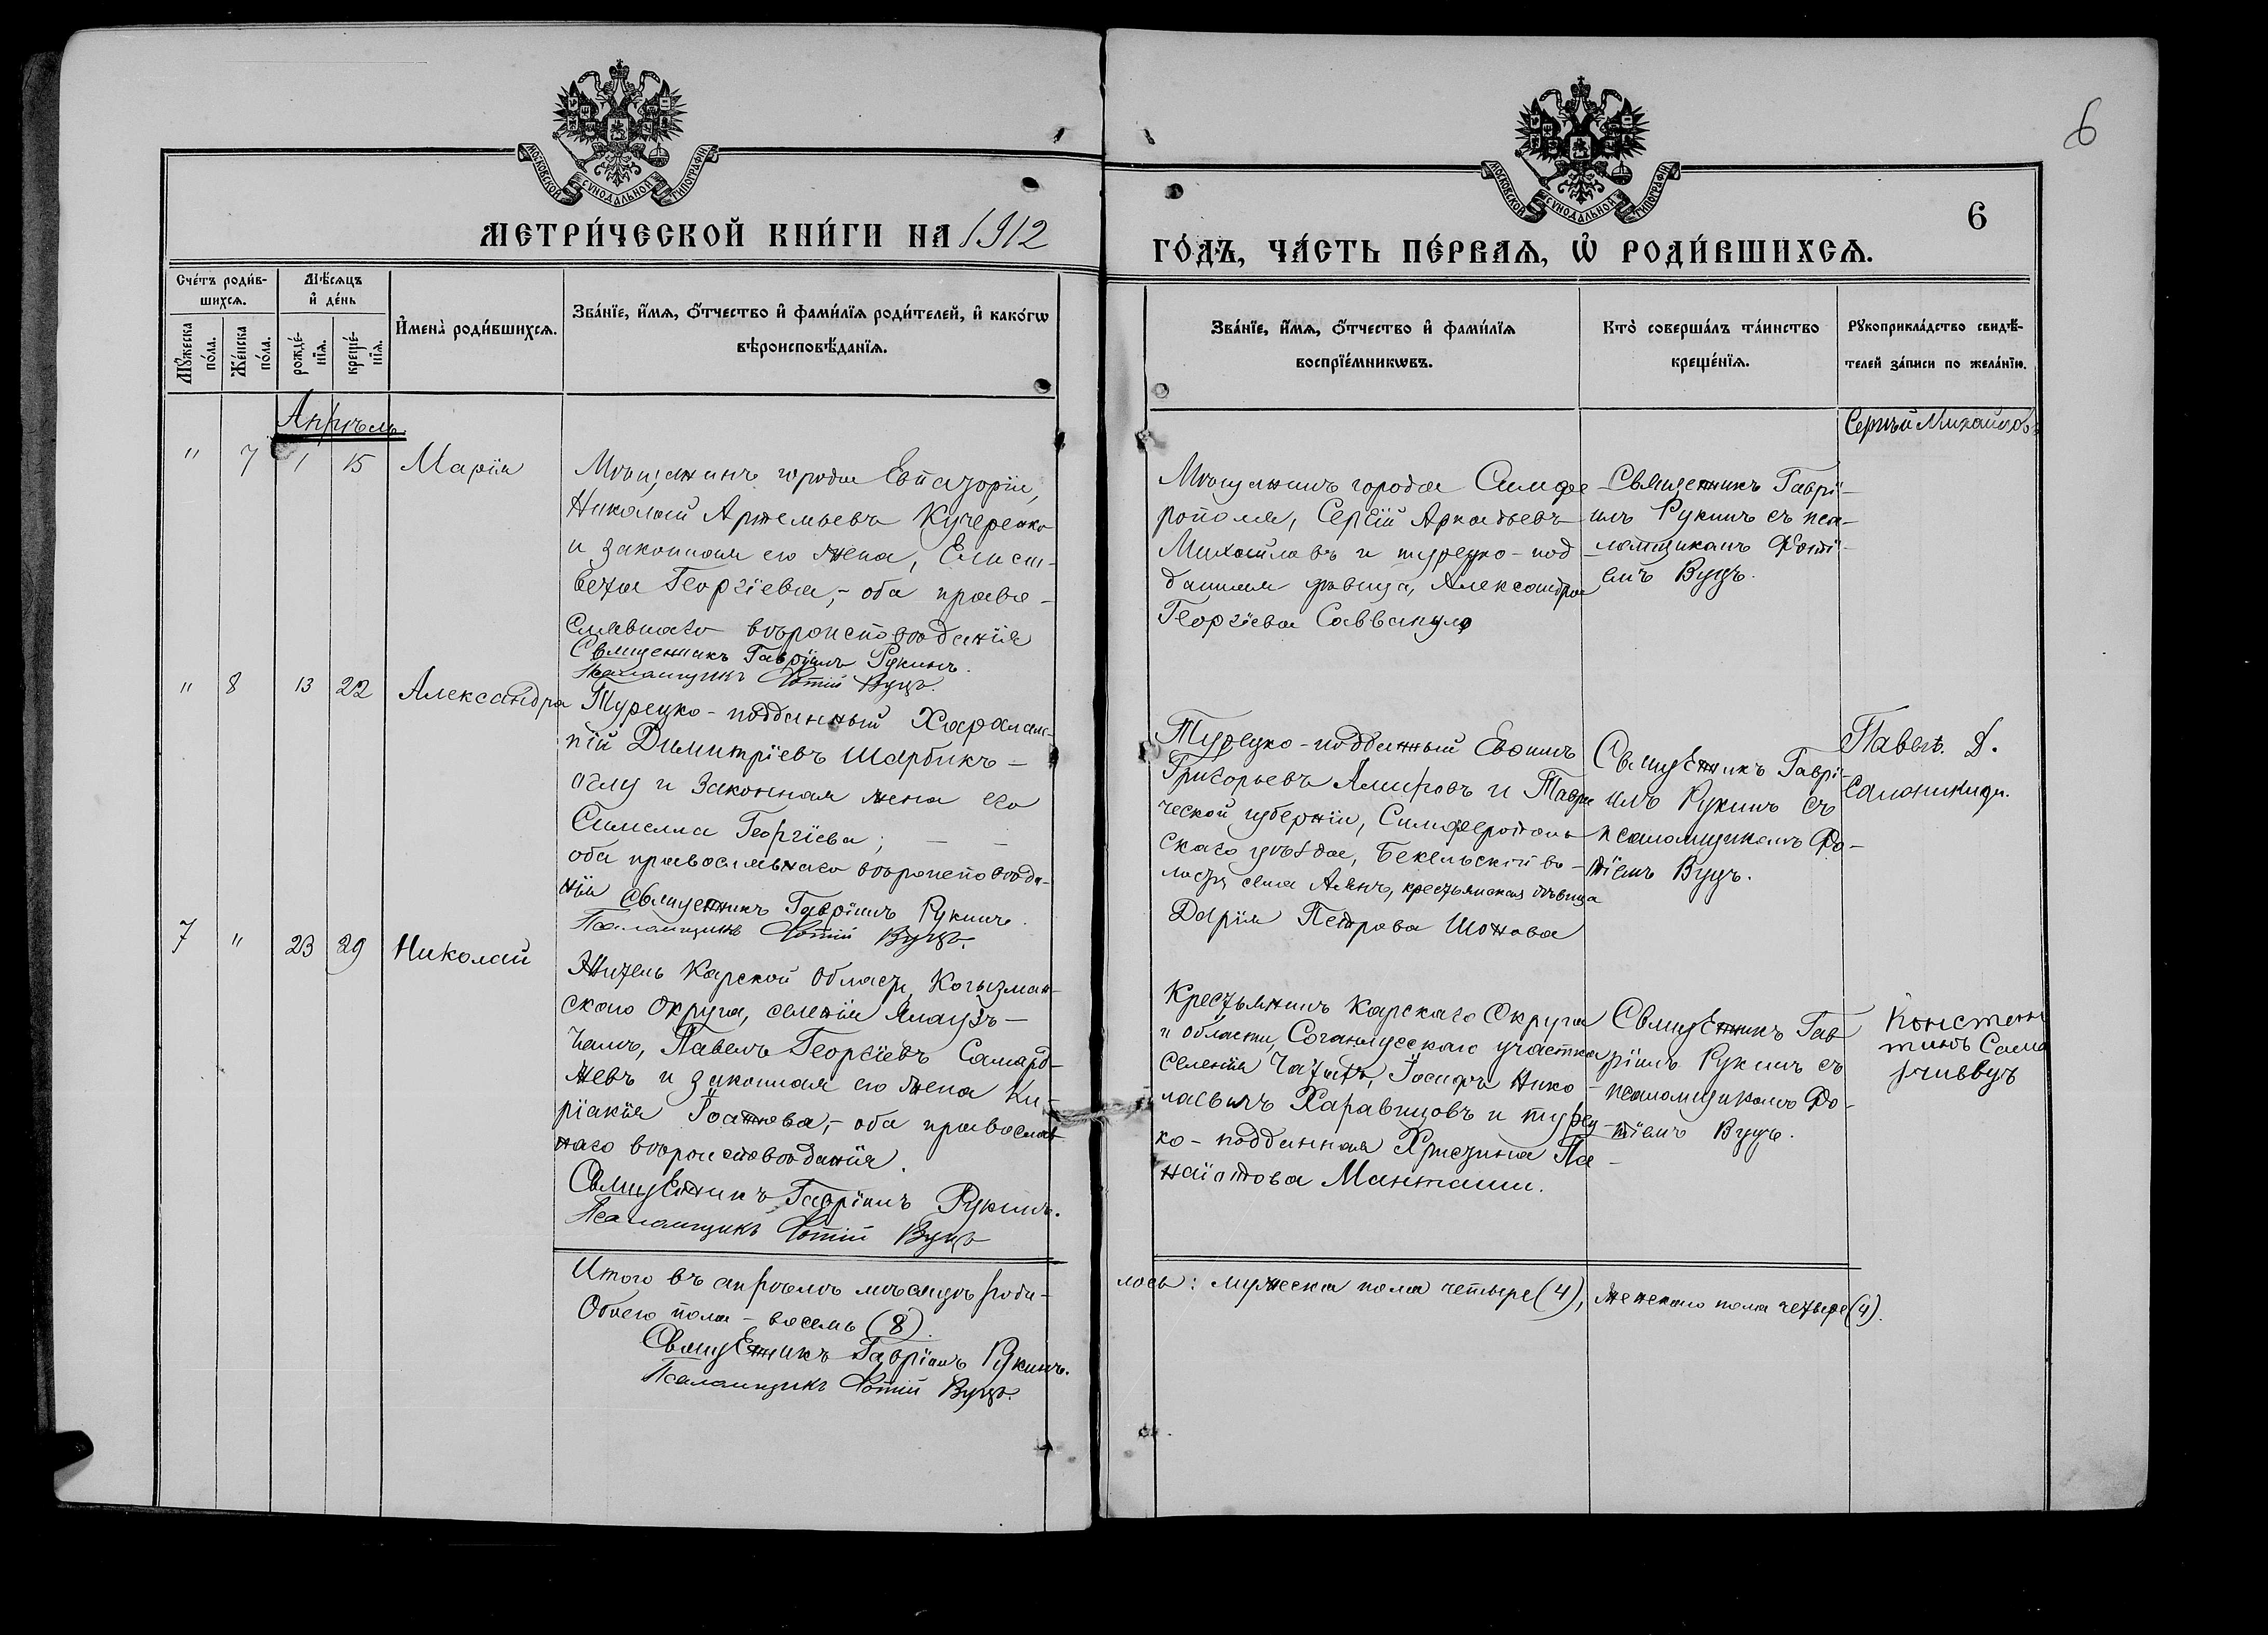 6
МОСКОВСКОЙ СУНОДАЛЬНОЙ ТИПОГРАФІИ
МОСКОВСКОЙ СУНОДАЛЬНОЙ ТИПОГРАФІИ
6
МЕТРИ́ЧЕСКОЙ КНИ́ГИ НА 1912
ГО́ДЪ, ЧА́СТЬ ПЕ́РВАѦ, Ѽ РОДИ́ВШИХСѦ.
Сче́тъ роди́в-
шихсѧ.
Мꙋжеска
по́ла.
Же́нска
по́ла.
Мѣ́сѧцъ
и҆ де́нь
рожде́-
нїѧ.
креще́-
нїѧ.
И҆мена̀ роди́вшихсѧ.
Зва́нїе, и҆́мѧ, ѻ҆́тчество и҆ фами́лїѧ роди́телей, и҆ како́гѡ
вѣроисповѣ́данїѧ.
Зва́нїе, и҆́мѧ, ѻ҆́тчество и҆ фами́лїѧ
воспрїе́мникѡвъ.
Кто̀ соверша́лъ та́инство
креще́нїѧ.
Рꙋкоприкла́дство свидѣ́-
телей за́писи по жела́нїю.
Апрѣль.
" 7 1 15 Марія
Мѣщанинъ города Евпаторіи,
Николай Артемьевъ Кучеренко
и законная его жена, Елиса-
вета Георгіева,- оба право-
славнаго вѣроисповѣданія
Священникъ Гавріилъ Рукинъ.
Псаломщикъ Фотій Вуцъ.
Мѣщанинъ города Симфе-
рополя, Сергій Аркадьевъ
Михайловъ и турецко-под-
данная дѣвица, Александра
Георгіева Саввапуло
Священникъ Гаврі-
илъ Рукинъ съ пса-
ломщикомъ Фоті-
емъ Вуцъ.
Сергѣй Михайловъ
" 8 13 22 Александра
Турецко-подданный Харалам-
пій Димитріевъ Шарбикъ-
оглу и законная жена его
Симелла Георгіева; — —
оба православнаго вѣроисповѣда-
нія Священникъ Гавріилъ Рукинъ.
Псаломщикъ Фотій Вуцъ.
Турецко-подданный Евѳимъ
Григорьевъ Амировъ и Таври
ческой губерніи, Симферополь
скаго уѣзда, Бекельской во-
лости села Аянъ, крестьянская дѣвица
Дарія Петрова Шонова
Священникъ Гаврі-
илъ Рукинъ съ
псаломщикомъ Фо-
тіемъ Вуцъ.
Павелъ. Д.
Салоникиди.
7 " 23 29 Николай
Житель Карской области, Когызман-
скаго Округа, селенія Ялаузъ-
Чамъ, Павелъ Георгіевъ Самард-
жевъ и законная его жена Ки-
ріакія Іоаннова,- оба православ-
наго вѣроисповѣданія.
Священникъ Гавріилъ Рукинъ.
Псаломщикъ Фотій Вуцъ
Крестьянинъ Карскаго Округа
и области, Соганлугскаго участка
селенія Чатахъ, Іосифъ Нико-
лаевичъ Харавицовъ и турец-
ко-подданная Христина Па-
наіотова Манташи.
Священникъ Гав
ріилъ Рукинъ съ
псаломщикомъ Фо-
тіемъ Вуцъ.
Констан
тинъ
Итого въ апрѣлѣ мѣсяцѣ роди-
лось: мужеска пола четыре (4), женскаго пола четыре (4).
Обоего пола - восемь (8).
Священникъ Гавріилъ Рукинъ.
Псаломщикъ Фотій Вуцъ.